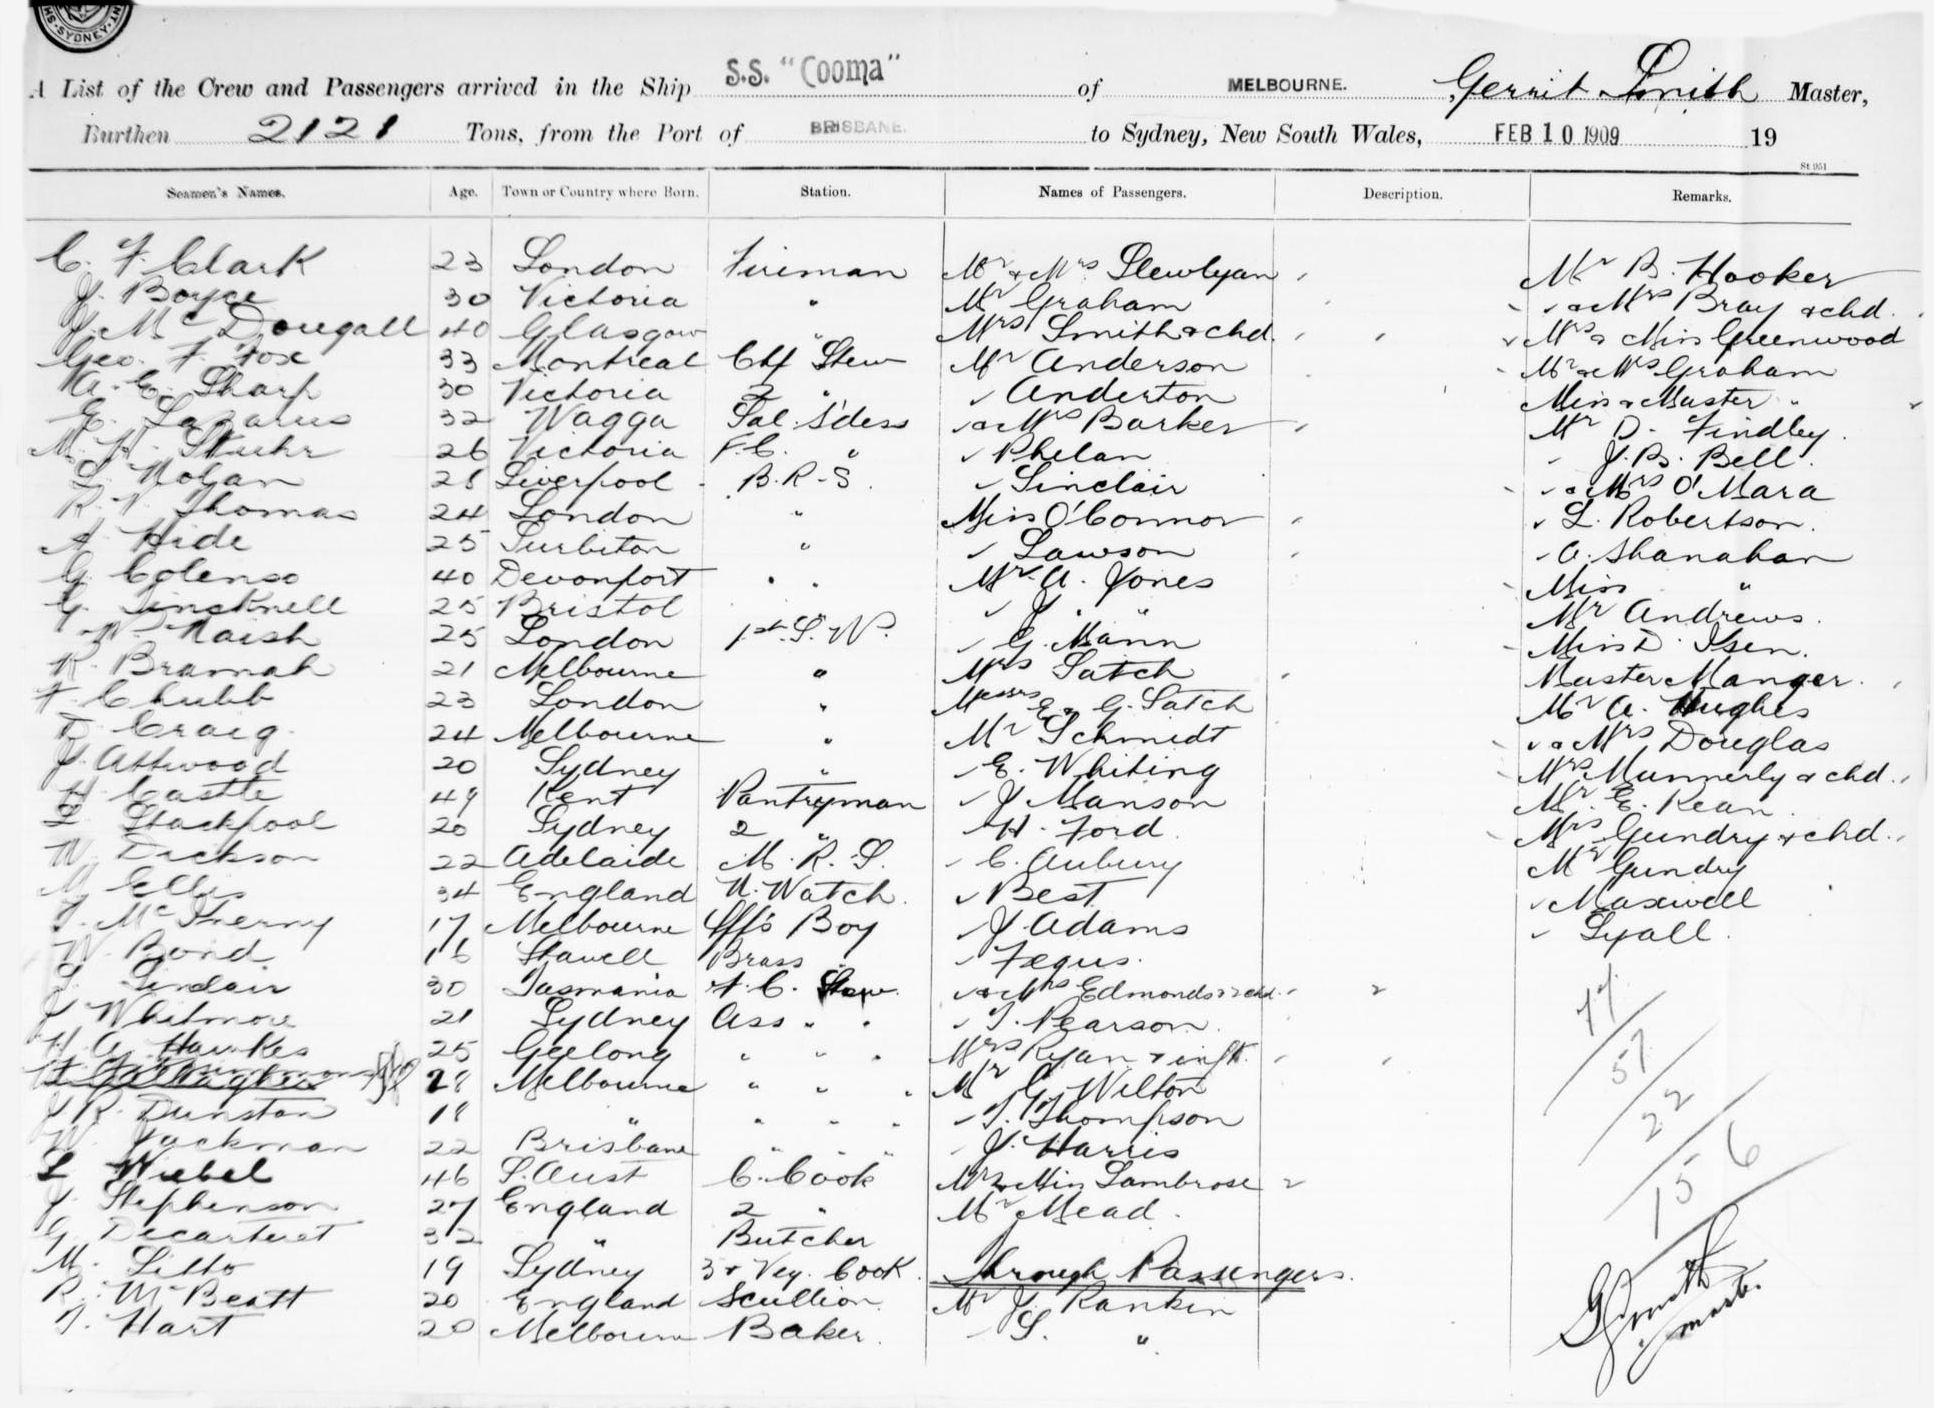 SYDNEY
A List of the Crew and Passengers arrived in the Ship S.S. "Cooma" of MELBOURNE. Gerrit Smith Master,
Burthen 2121 Tons, from the Port of BRISBANE. to Sydney, New South Wales, FEB 10 1909 19
St 951
Seamen's Names. Age. Town or Country where Born. Station. Names of Passengers. Description. Remarks.
C. F. Clark 23 London Fireman Mr & Mrs Mr B. Hooker
J. Boyce 30 Victoria " Mr Graham " & Mrs Bray & chd.
J. Mc Dougall 40 Glasgow " Mrs Smith & chd. Mrs & Miss Greenwood
Geo. F. Fox 33 Montreal Chf Stew Mr Anderson Mr & Mrs Graham
A. E. Sharp 30 Victoria 2 " " Anderton Miss & Master "
E. Lazarus 32 Wagga Sal. S'dess " & Mrs Barker Mr D. Findley.
M. Stuhr 26 Victoria F.C. " " Phelan " J. B. Bell.
L. Nolan 28 Liverpool B.R.S. " Sinclair " & Mrs O'Mara
R. V. Thomas 24 London " Miss O'Connor " L. Robertson.
A. Hide 25 Surbiton " " Lawson " A. Shanahan
G. Colenso 40 Devonport " " Mr A. Jones Miss "
G. Tincknell 25 Bristol " J. " Mr Andrews.
W. Naish 25 London 1st S.W. " G. Mann Miss D. Isen.
R. Bramah 21 Melbourne " Mrs Satch Master Manger.
F. Chubb 23 London " Messrs E & G. Satch Mr A. Hughes
D. Craig 24 Melbourne " Mr Schmidt " & Mrs Douglas
J. Attwood 20 Sydney " " E. Whiting Mrs Munnerly & chd.
H. Castle 49 Kent Pantryman " J. Manson Mr E. Kean
L. Stackpool 20 Sydney 2 " " H. Ford Mrs Gundry & chd.
W. Dickson 22 Adelaide M.R.S. " C. Aubury Mr Gundry
M. Ellis 34 England N. Watch " Best " Maxwell
T. McInerny 17 Melbourne Off's Boy " J. Adams " Lyall.
W. Bond 16 Stawell Brass " " Fegus.
S. Sinclair 30 Tasmania F.C. Stew. " & Mrs Edmonds & 2 chd.
J. Whitmore 21 Sydney Ass " " " T. Pearson
H. A. Hawkes 25 Geelong " " " Mrs Ryan & inft.
28 Melbourne " " " Mr G. Wilton
J. R. Dunstan 18 " " " " " T. Thompson
W. Jackman 22 Brisbane " " " " J. Harris
L. Wiebel 46 S. Aust C. Cook Mr & Miss Lambrose
J. Stephenson 27 England 2 " Mr Mead.
G. Decarteret 32 " Butcher
M. Litto 19 Sydney 3 & Veg. Cook Through Passengers.
R. McBeatt 20 England Scullion Mr J. Rankin
T. Hart 20 Melbourne Baker. " S. "
77
57
22
156
G Smith